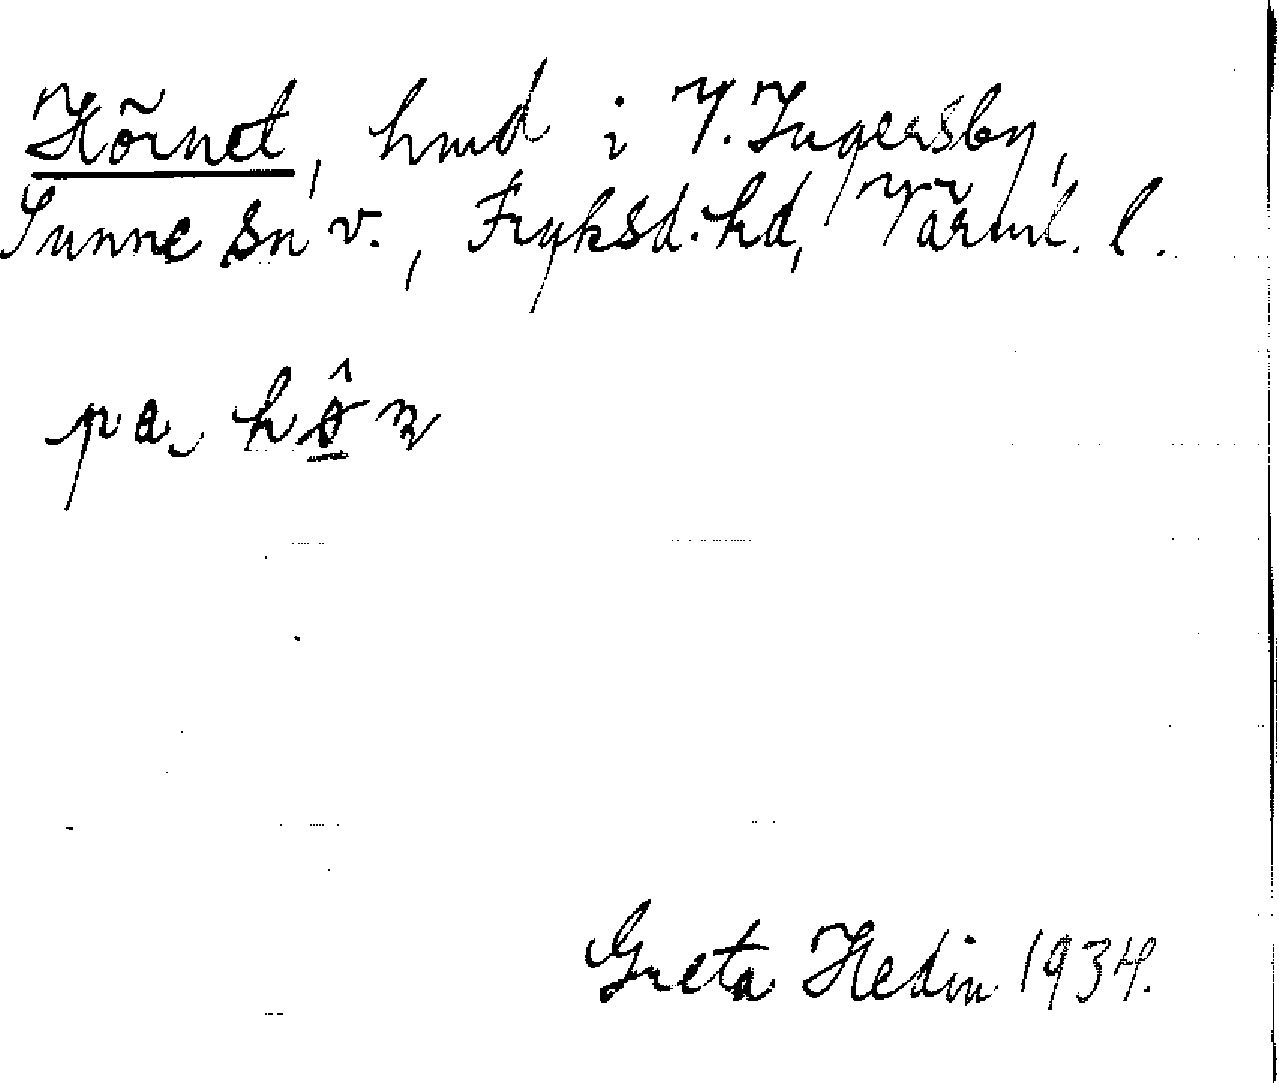 Hörnet, hmd i V. Ingersby,
Sunne sn v., Fryksd. hd, Värml. l.
pa
Greta Hedin 1934.